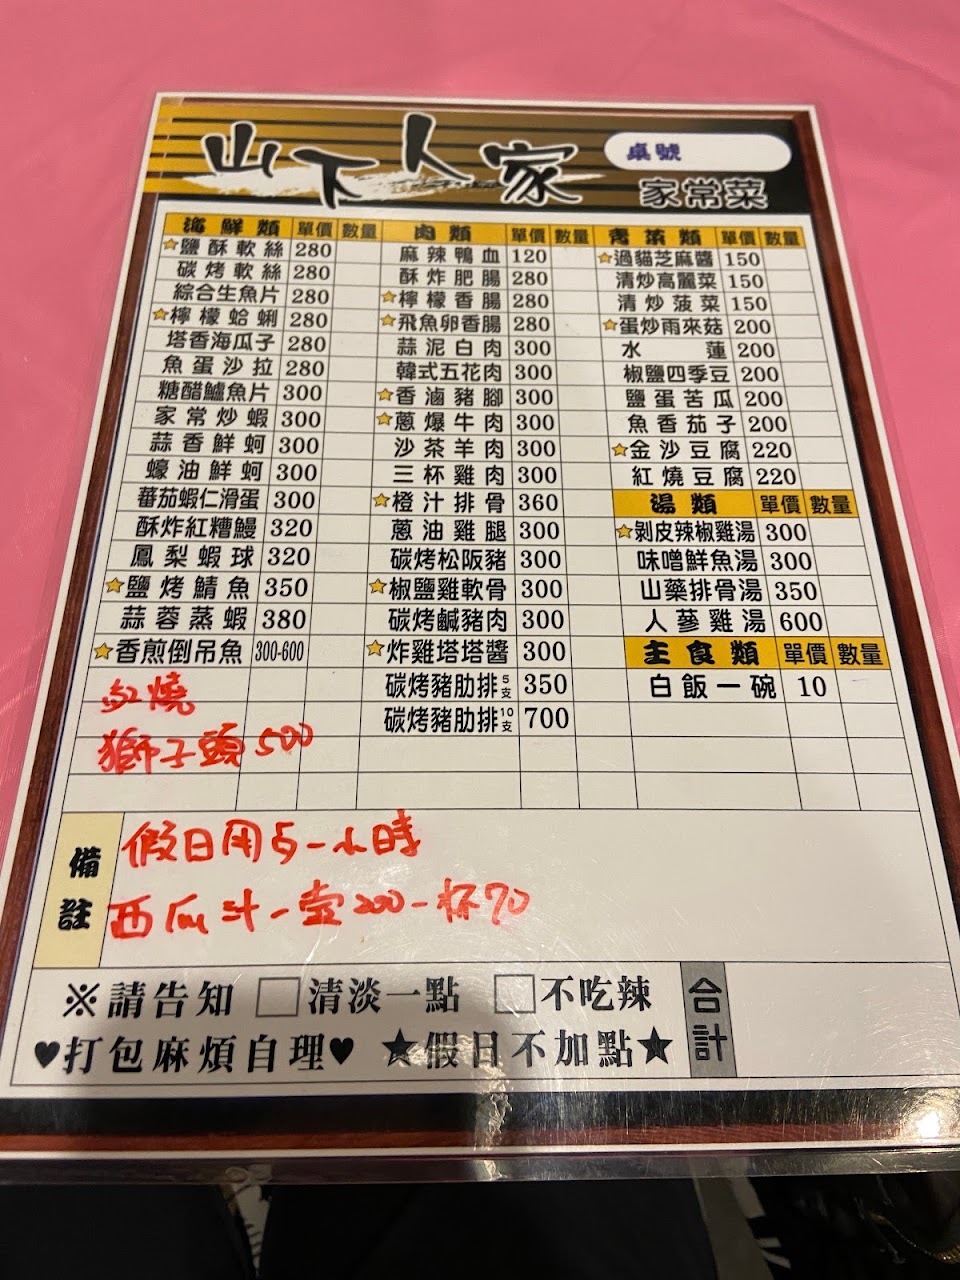 山下人家
桌號
家常菜
海鮮類 單價 數量
☆鹽酥軟絲 280
碳烤軟絲 280
綜合生魚片 280
☆檸檬蛤蜊 280
塔香海瓜子 280
魚蛋沙拉 280
糖醋鱸魚片 300
家常炒蝦 300
蒜香鮮蚵 300
蠔油鮮蚵 300
蕃茄蝦仁滑蛋 300
酥炸紅糟鰻 320
鳳梨蝦球 320
☆鹽烤鯖魚 350
蒜蓉蒸蝦 380
☆香煎倒吊魚 300-600
紅燒
獅子頭 500
肉類 單價 數量
麻辣鴨血 120
酥炸肥腸 280
☆檸檬香腸 280
☆飛魚卵香腸 280
蒜泥白肉 300
韓式五花肉 300
☆香滷豬腳 300
☆蔥爆牛肉 300
沙茶羊肉 300
三杯雞肉 300
☆橙汁排骨 360
蔥油雞腿 300
碳烤松阪豬 300
☆椒鹽雞軟骨 300
碳烤鹹豬肉 300
☆炸雞塔塔醬 300
碳烤豬肋排5支 350
碳烤豬肋排10支 700
青菜類 單價 數量
☆過貓芝麻醬 150
清炒高麗菜 150
清炒菠菜 150
☆蛋炒雨來菇 200
水蓮 200
椒鹽四季豆 200
鹽蛋苦瓜 200
魚香茄子 200
☆金沙豆腐 220
紅燒豆腐 220
湯類 單價 數量
☆剝皮辣椒雞湯 300
味噌鮮魚湯 300
山藥排骨湯 350
人蔘雞湯 600
主食類 單價 數量
白飯一碗 10
備註
假日用ㄢ一小時
西瓜汁一壺200一杯70
※請告知 □清淡一點 □不吃辣
♥打包麻煩自理♥ ★假日不加點★
合計